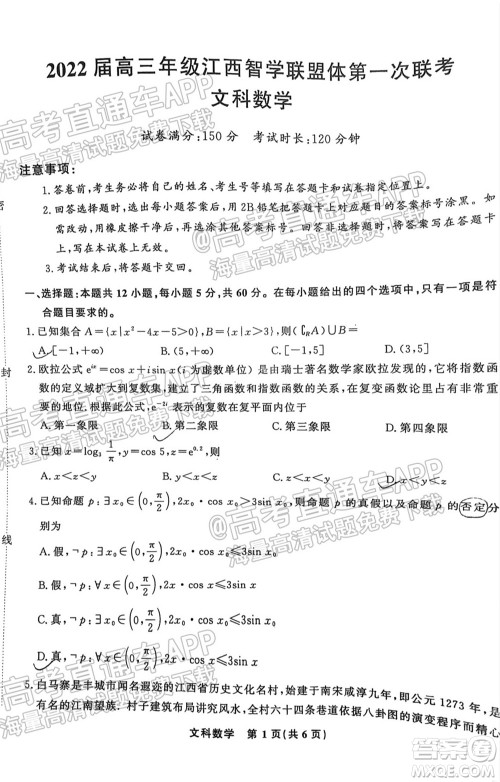 2022届高三年级江西智学联盟体第一次联考
文科数学
试卷满分:150分 考试时长:120分钟
注意事项:
1.答卷前,考生务必将自己的姓名、考生号等填写在答题卡和试卷指定位置上。
2.回答选择题时,选出每小题答案后,用2B铅笔把答题卡上对应题目的答案标号涂黑。如
需改动,用橡皮擦干净后,再选涂其他答案标号。回答非选择题时,将答案写在答题卡
上。写在本试卷上无效。
3.考试结束后,将答题卡交回。
一、选择题:本题共12小题,每小题5分,共60分。在每小题给出的四个选项中,只有一项是符
合题目要求的。
1.已知集合A={x|x²-4x-5>0},B={x|x>3},则(∁_R A)∪B=
A.[-1,+∞) B.(5,+∞) C.[-1,5] D.(3,5]
2.欧拉公式e^{ix}=cos x+isin x(i为虚数单位)是由瑞士著名数学家欧拉发现的,它将指数函
数的定义域扩大到复数集,建立了三角函数和指数函数的关系,在复变函数论里占有非常重
要的地位,e^{-2i}表示的复数在复平面内位于
A.第一象限 B.第二象限 C.第三象限 D.第四象限
3.已知x=log
A.x<y B. D.
4.已知命题p:∃x₀∈(0,π/2),2x₀·cos x₀>3sin x₀,则命题p的真假以及命题p的否定分
别为
A.假,¬p:∃x₀∈(0,π/2),2x₀·cos x₀≤3sin x
B.假,¬p:∀x∈(0,π/2),2x·cos x≤3sin x
C.真,¬p:∀x₀∈(0,π/2),2x₀·cos x₀≤3sin x₀
D.真,¬p:∀x∈(0,π/2),2x·cos x≤3sin x
5.白马寨是丰城市闻名遐迩的江西省历史文化名村,始建于南宋咸淳九年,即公元1273年,现
存有 村子建筑 讲究风水,全村六十四条巷道是依八卦图的演变程序而精心
文科数学 第1页(共6页)
密
封
线
高考直通车APP
海量高清试题免费下载